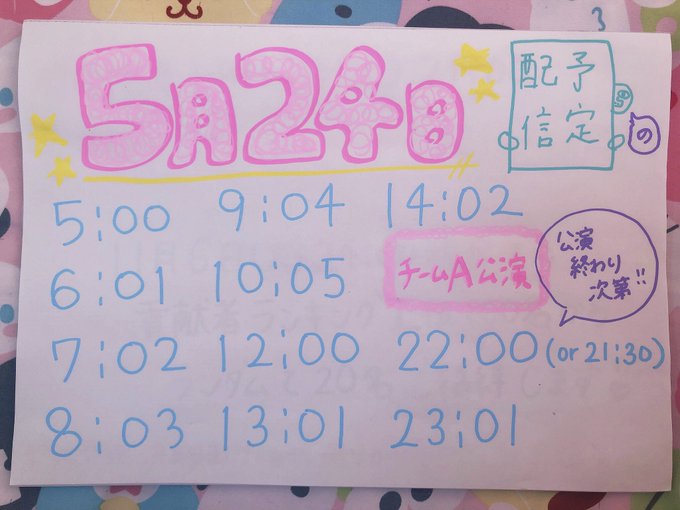 5月24日
配信予定
の
5:00 9:04 14:02
6:01 10:05
チームA公演
公演
終わり
次第!!
7:02 12:00 22:00(or 21:30)
8:03 13:01 23:01